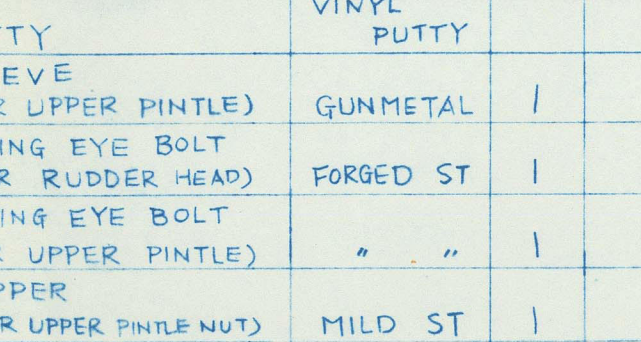 VINYL
TTY PUTTY
EVE
R UPPER PINTLE) GUNMETAL 1
ING EYE BOLT
R RUDDER HEAD) FORGED ST 1
ING EYE BOLT
UPPER PINTLE) " " 1
PPER
R UPPER PINTLE NUT) MILD ST 1